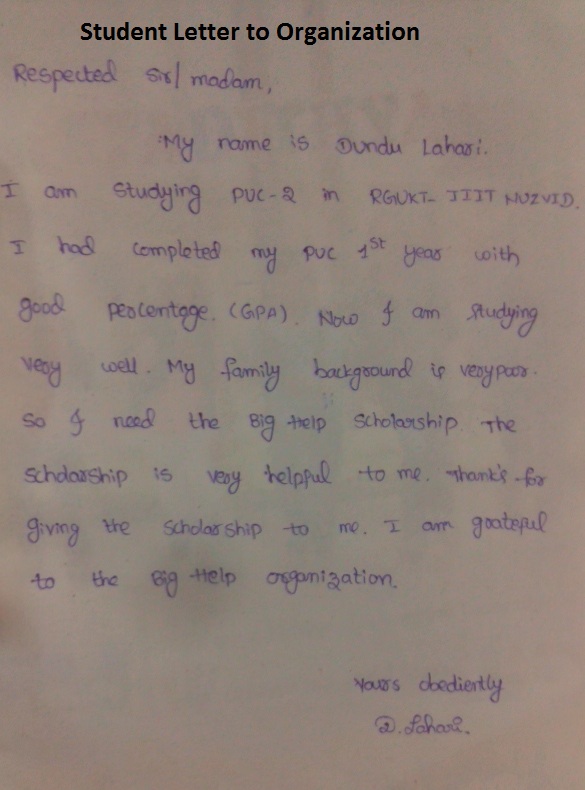 Student Letter to Organization
Respected Sir/ madam,
My name is Dundu Lahari.
I am Studying PUC-2 in RGUKT- IIIT NUZVID.
I had completed my PUC 1st year with
good percentage. (GPA). Now I am Studying
very well. My family background is very poor.
So I need the Big Help Scholarship. The
Scholarship is very helpful to me. Thank's for
giving the Scholarship to me. I am grateful
to the Big Help organization.
Yours obediently
D. Lahari.